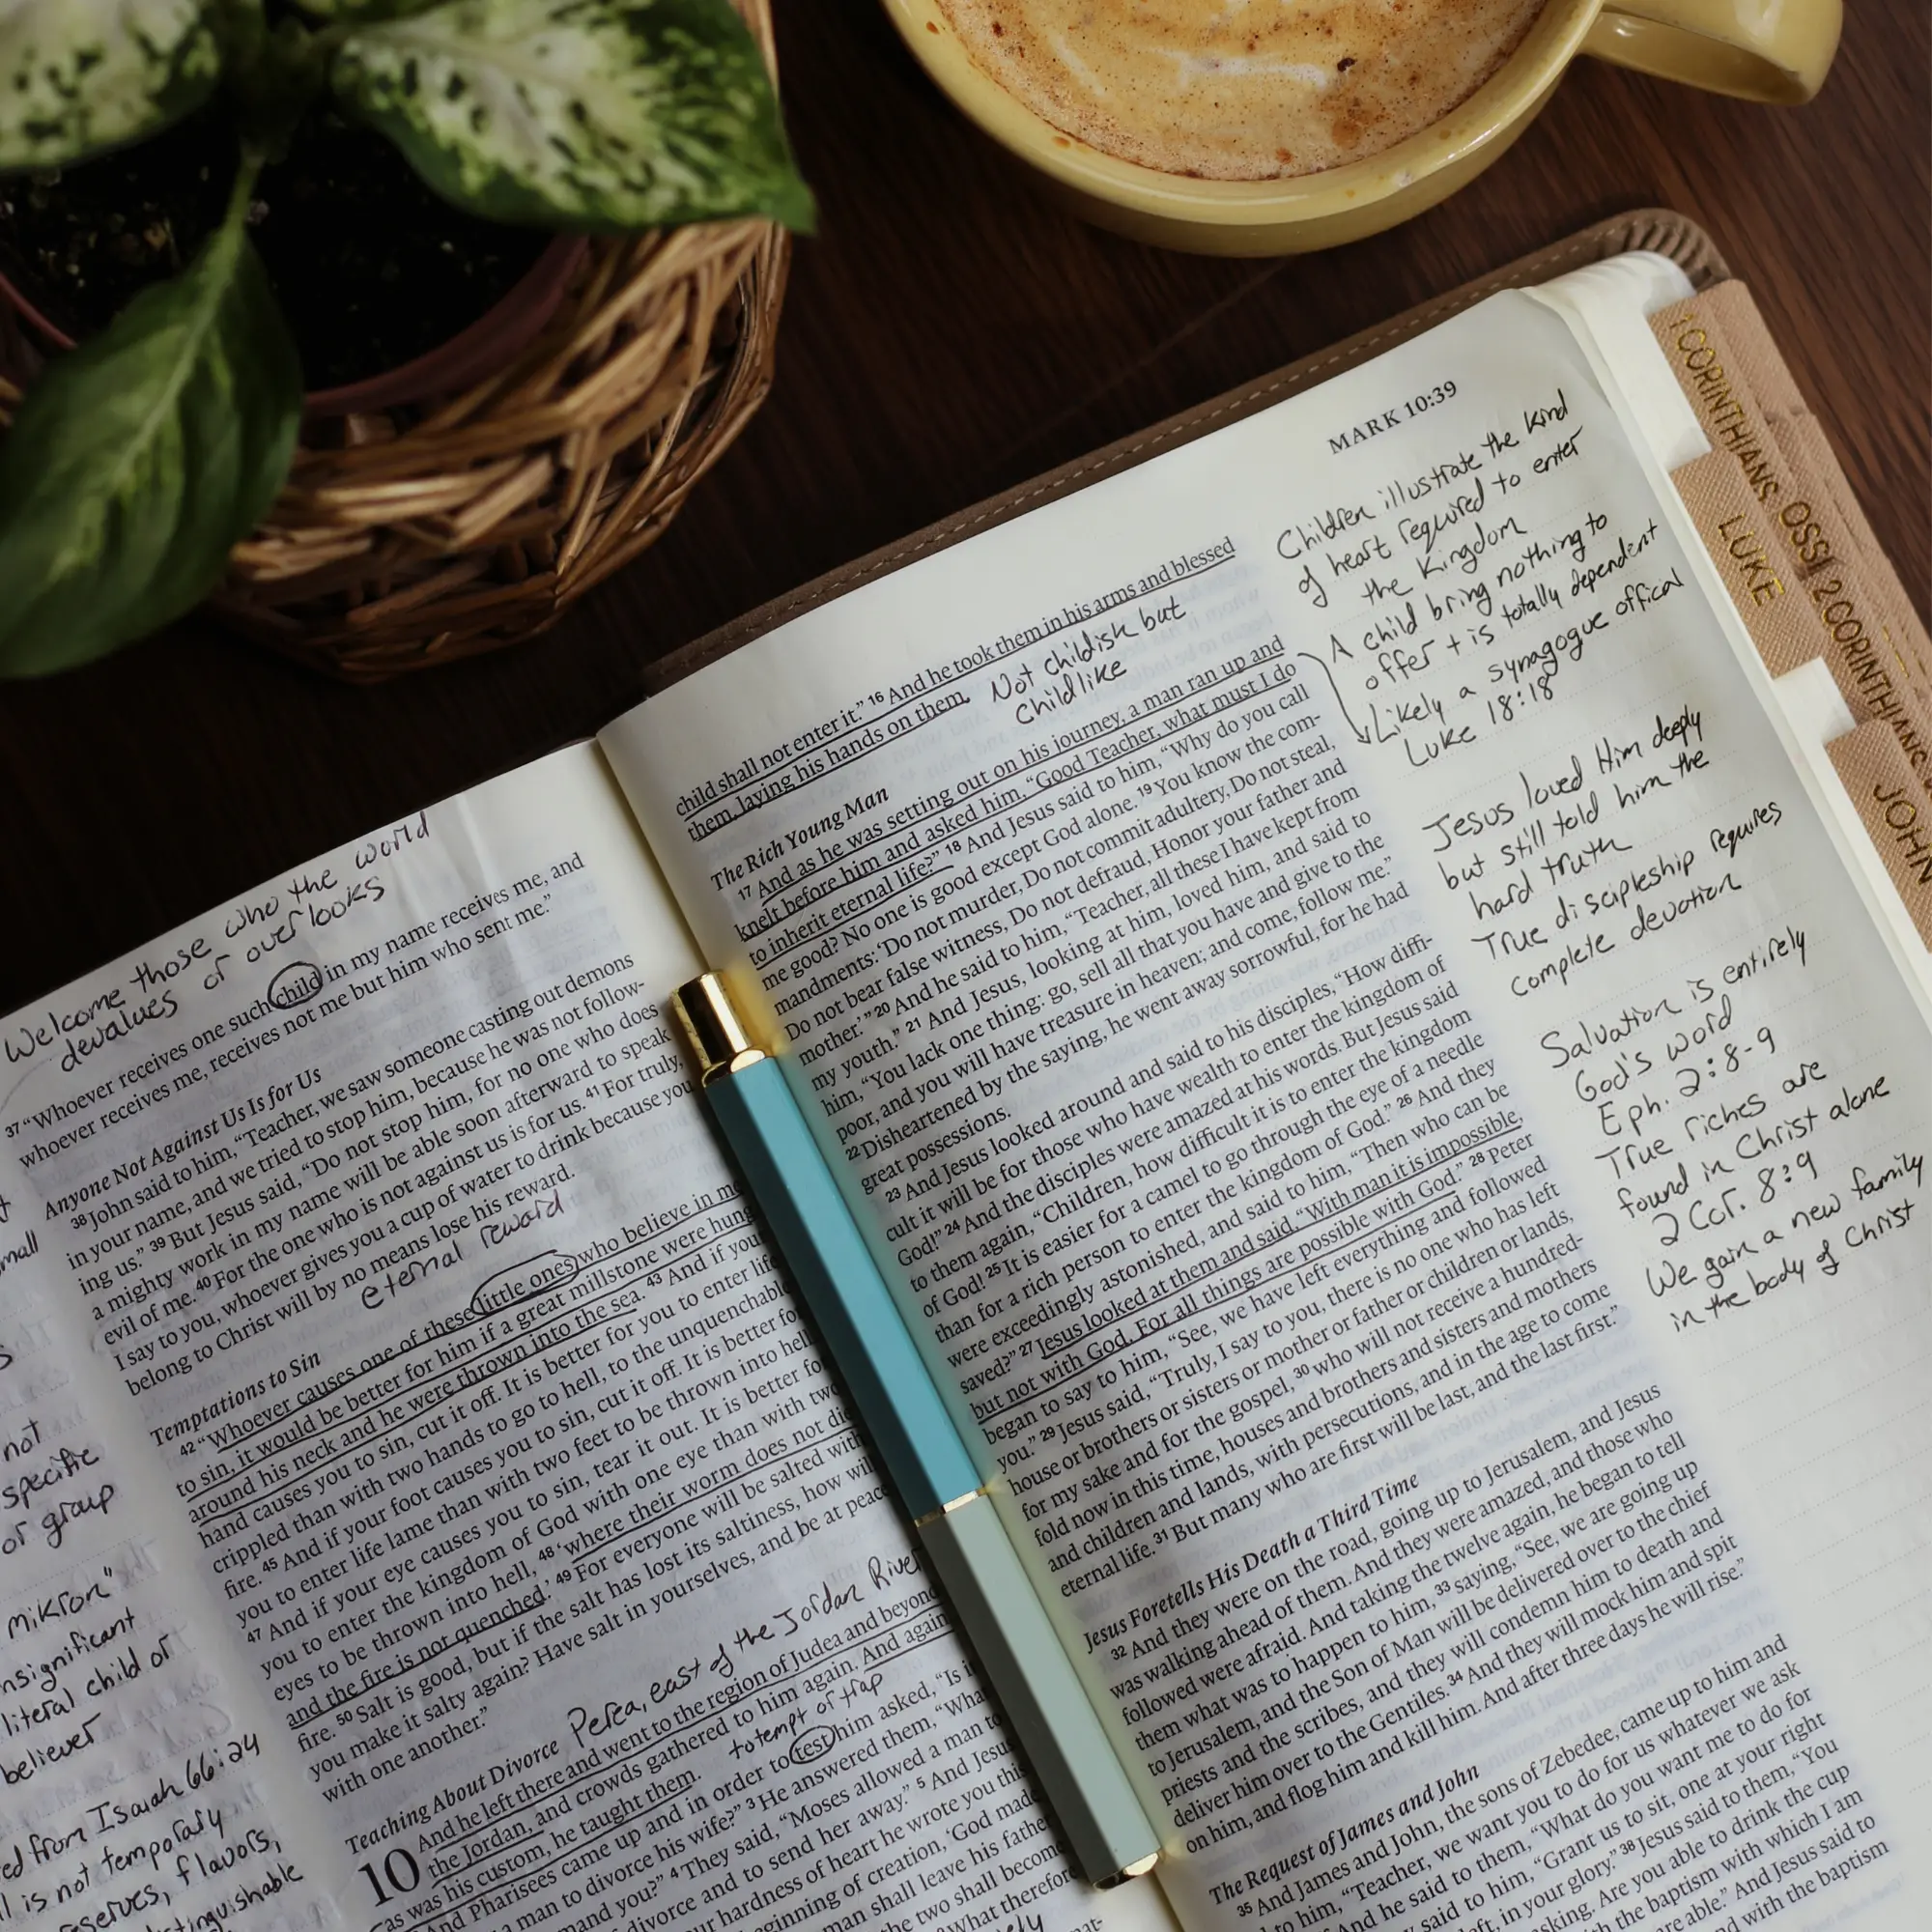 Welcome those who the world
devalues or overlooks
37 “Whoever receives one such child in my name receives me, and
whoever receives me, receives not me but him who sent me.”
Anyone Not Against Us Is for Us
38 John said to him, “Teacher, we saw someone casting out demons
in your name, and we tried to stop him, because he was not follow-
ing us.” 39 But Jesus said, “Do not stop him, for no one who does
a mighty work in my name will be able soon afterward to speak
evil of me. 40 For the one who is not against us is for us. 41 For truly,
I say to you, whoever gives you a cup of water to drink because you
belong to Christ will by no means lose his reward.
eternal reward
Temptations to Sin
42 “Whoever causes one of these little ones who believe in me
to sin, it would be better for him if a great millstone were hung
around his neck and he were thrown into the sea. 43 And if your
hand causes you to sin, cut it off. It is better for you to enter life
crippled than with two hands to go to hell, to the unquenchable
fire. 45 And if your foot causes you to sin, cut it off. It is better for
you to enter life lame than with two feet to be thrown into hell.
47 And if your eye causes you to sin, tear it out. It is better for
you to enter the kingdom of God with one eye than with two
eyes to be thrown into hell, 48 ‘where their worm does not die
and the fire is not quenched.’ 49 For everyone will be salted with
fire. 50 Salt is good, but if the salt has lost its saltiness, how will
you make it salty again? Have salt in yourselves, and be at peace
with one another.”
Teaching About Divorce
Perea, east of the Jordan River
10 And he left there and went to the region of Judea and beyond
the Jordan, and crowds gathered to him again. And again,
as was his custom, he taught them.
to tempt or trap
And Pharisees came up and in order to test him asked, “Is i
a man to divorce his wife?” 3 He answered them, “What
mand you?” 4 They said, “Moses allowed a man to
divorce and to send her away.” 5 And Jesus
ur hardness of heart he wrote you this
ginning of creation, ‘God made
man shall leave his father
the two shall become
What therefore
small
not
specific
or group
mikron”
nsignificant
literal child or
believer
ed from Isaiah 66:24
l is not temporary
serves, flavors,
stinguishable
MARK 10:39
child shall not enter it.” 16 And he took them in his arms and blessed
them, laying his hands on them.
Not childish but
childlike
The Rich Young Man
17 And as he was setting out on his journey, a man ran up and
knelt before him and asked him, “Good Teacher, what must I do
to inherit eternal life?” 18 And Jesus said to him, “Why do you call
me good? No one is good except God alone. 19 You know the com-
mandments: ‘Do not murder, Do not commit adultery, Do not steal,
Do not bear false witness, Do not defraud, Honor your father and
mother.’” 20 And he said to him, “Teacher, all these I have kept from
my youth.” 21 And Jesus, looking at him, loved him, and said to
him, “You lack one thing: go, sell all that you have and give to the
poor, and you will have treasure in heaven; and come, follow me.”
22 Disheartened by the saying, he went away sorrowful, for he had
great possessions.
23 And Jesus looked around and said to his disciples, “How diffi-
cult it will be for those who have wealth to enter the kingdom of
God!” 24 And the disciples were amazed at his words. But Jesus said
to them again, “Children, how difficult it is to enter the kingdom
of God! 25 It is easier for a camel to go through the eye of a needle
than for a rich person to enter the kingdom of God.” 26 And they
were exceedingly astonished, and said to him, “Then who can be
saved?” 27 Jesus looked at them and said, “With man it is impossible,
but not with God. For all things are possible with God.” 28 Peter
began to say to him, “See, we have left everything and followed
you.” 29 Jesus said, “Truly, I say to you, there is no one who has left
house or brothers or sisters or mother or father or children or lands,
for my sake and for the gospel, 30 who will not receive a hundred-
fold now in this time, houses and brothers and sisters and mothers
and children and lands, with persecutions, and in the age to come
eternal life. 31 But many who are first will be last, and the last first.”
Jesus Foretells His Death a Third Time
32 And they were on the road, going up to Jerusalem, and Jesus
was walking ahead of them. And they were amazed, and those who
followed were afraid. And taking the twelve again, he began to tell
them what was to happen to him, 33 saying, “See, we are going up
to Jerusalem, and the Son of Man will be delivered over to the chief
priests and the scribes, and they will condemn him to death and
deliver him over to the Gentiles. 34 And they will mock him and spit
on him, and flog him and kill him. And after three days he will rise.”
The Request of James and John
35 And James and John, the sons of Zebedee, came up to him and
to him, “Teacher, we want you to do for us whatever we ask
he said to them, “What do you want me to do for
y said to him, “Grant us to sit, one at your right
left, in your glory.” 38 Jesus said to them, “You
asking. Are you able to drink the cup
the baptism with which I am
are able.” And Jesus said to
d with the baptism
Children illustrate the kind
of heart required to enter
the Kingdom
A child bring nothing to
offer + is totally dependent
Likely a synagogue offical
Luke 18:18
Jesus loved Him deeply
but still told him the
hard truth
True discipleship requires
complete devotion
Salvation is entirely
God's word
Eph. 2:8-9
True riches are
found in Christ alone
2 Cor. 8:9
We gain a new family
in the body of Christ
1 CORINTHIANS
LUKE
OSSI
2 CORINTHIANS
JOHN